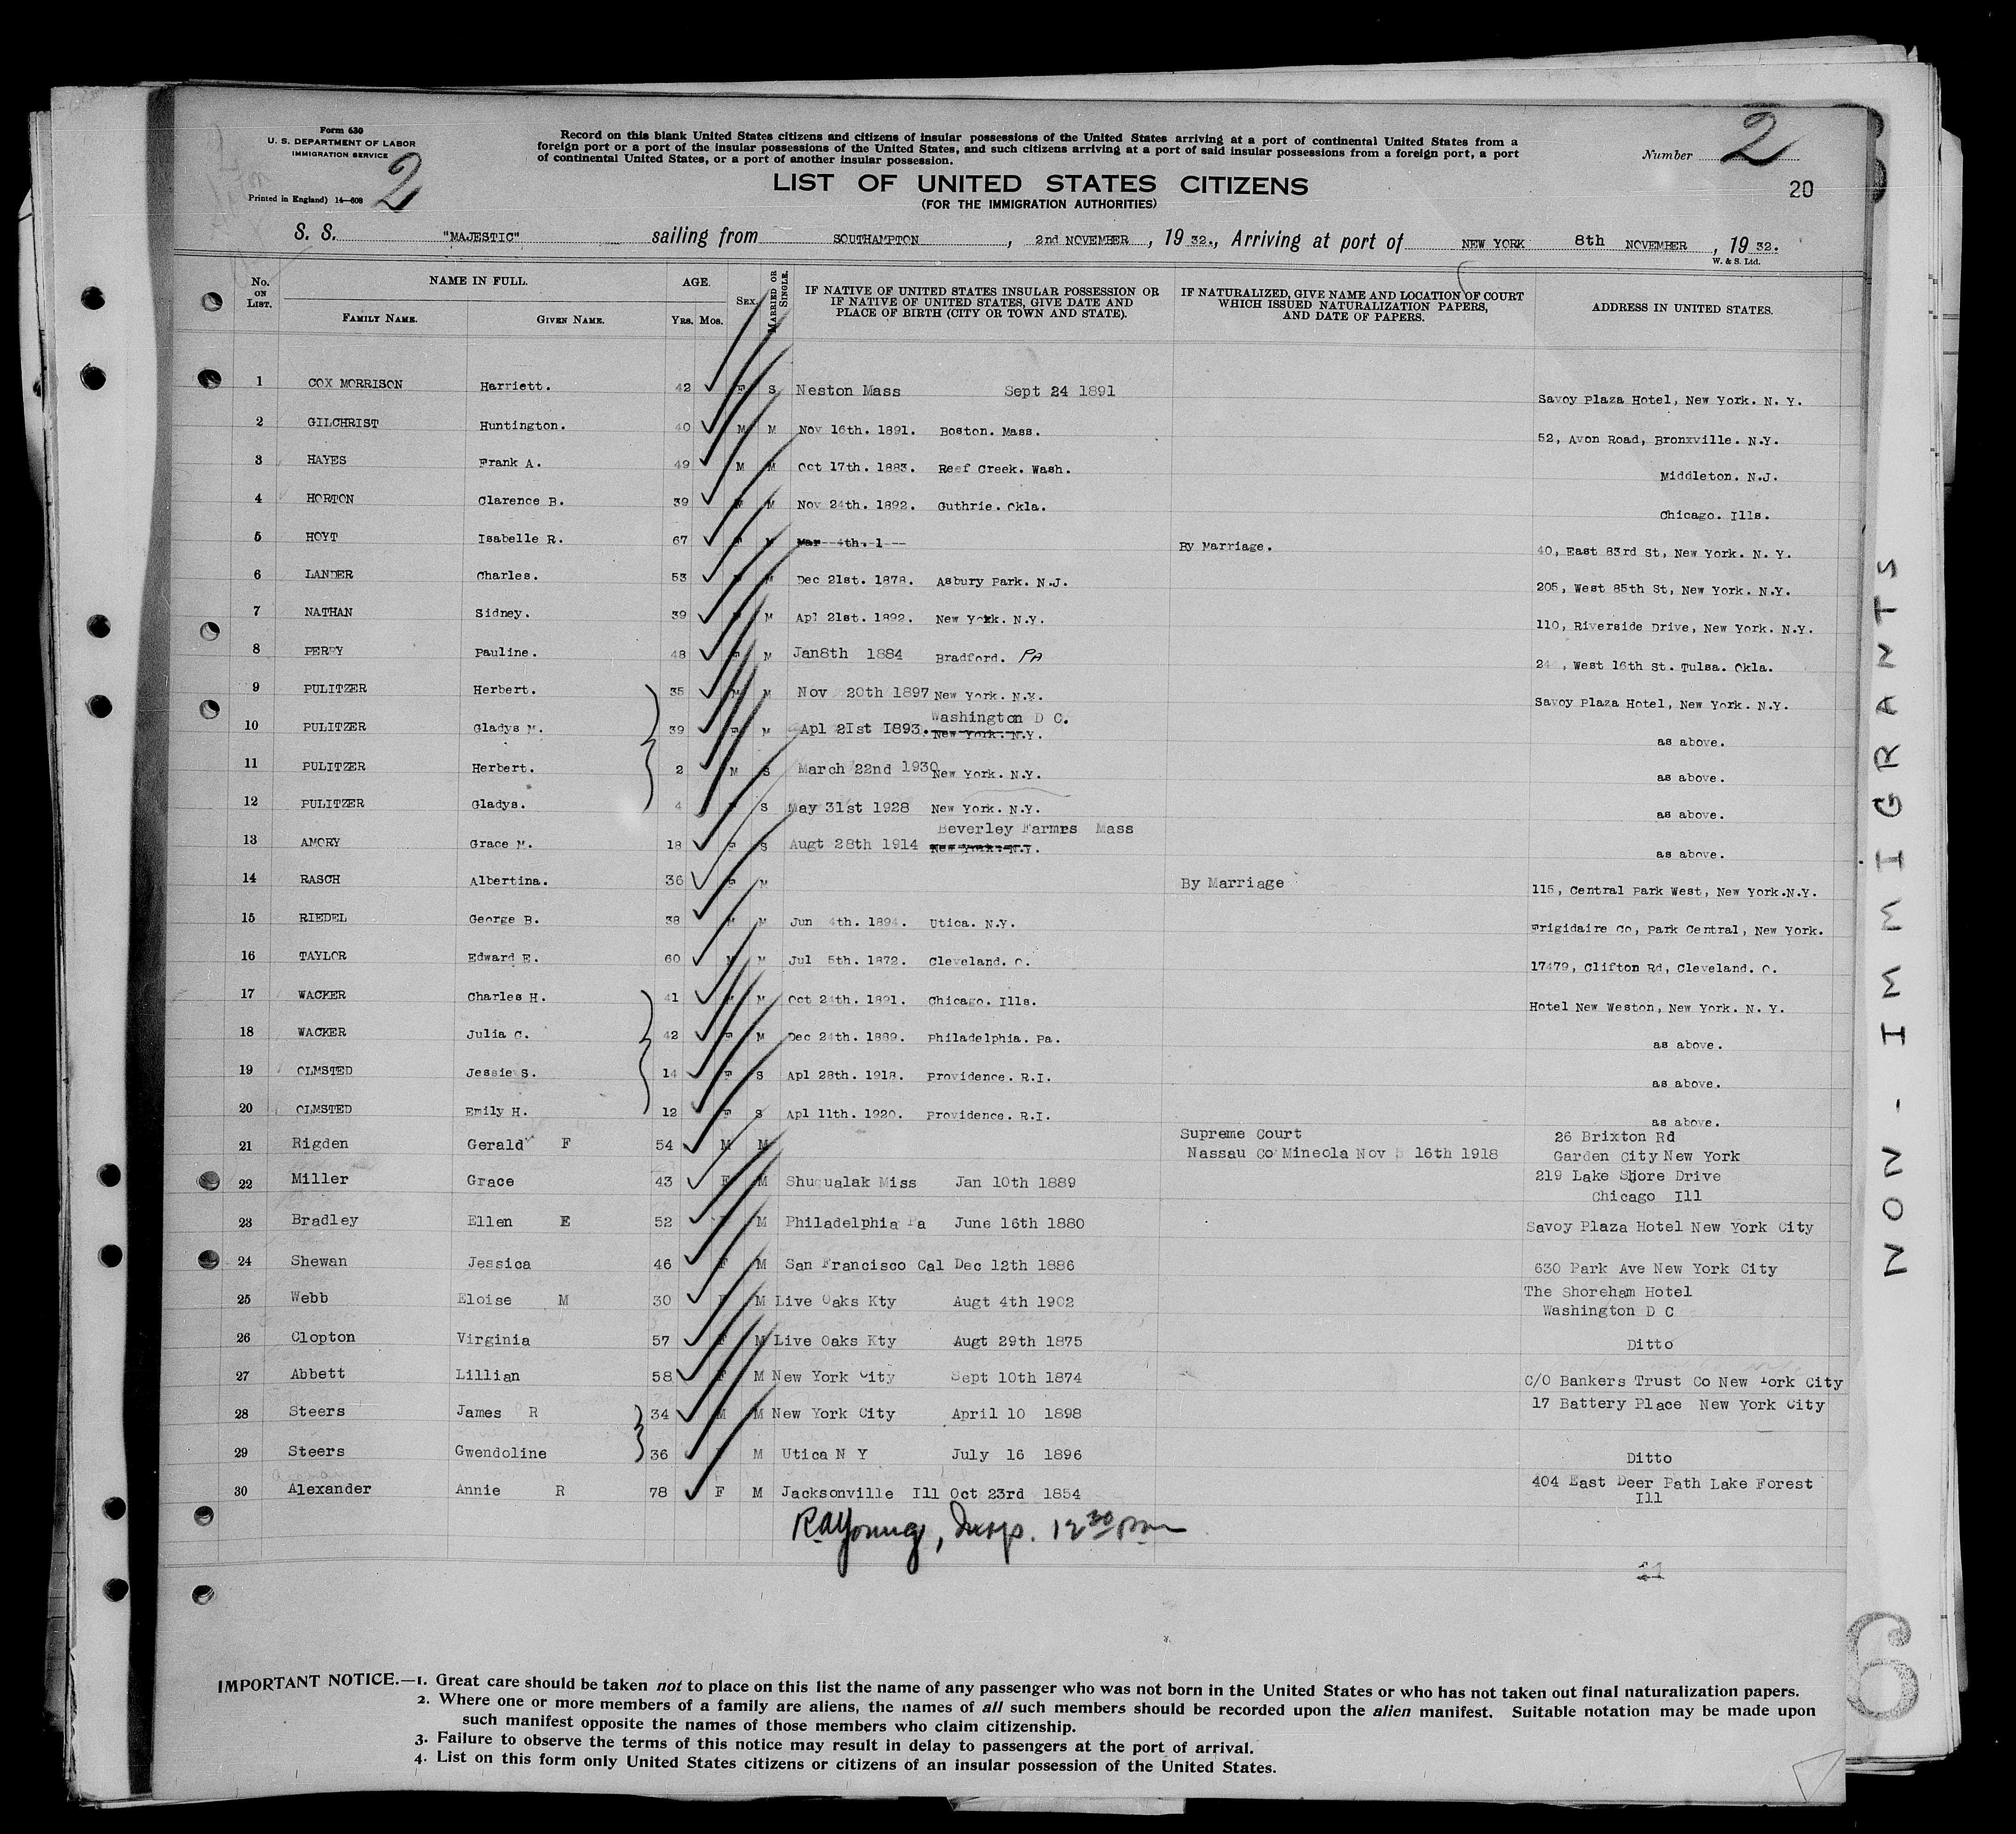 Form 630
U. S. DEPARTMENT OF LABOR
IMMIGRATION SERVICE
Printed in England) 14—608
2
Record on this blank United States citizens and citizens of insular possessions of the United States arriving at a port of continental United States from a
foreign port or a port of the insular possessions of the United States, and such citizens arriving at a port of said insular possessions from a foreign port, a port
of continental United States, or a port of another insular possession.
Number 2
20
LIST OF UNITED STATES CITIZENS
(FOR THE IMMIGRATION AUTHORITIES)
S. S. "MAJESTIC" sailing from SOUTHAMPTON, 2nd NOVEMBER, 19 32., Arriving at port of NEW YORK 8th NOVEMBER, 19 32.
W. & S. Ltd.
No. ON LIST. NAME IN FULL. FAMILY NAME. GIVEN NAME. AGE. YRS. MOS. SEX. MARRIED OR SINGLE. IF NATIVE OF UNITED STATES INSULAR POSSESSION OR IF NATIVE OF UNITED STATES, GIVE DATE AND PLACE OF BIRTH (CITY OR TOWN AND STATE). IF NATURALIZED, GIVE NAME AND LOCATION OF COURT WHICH ISSUED NATURALIZATION PAPERS, AND DATE OF PAPERS. ADDRESS IN UNITED STATES.
1 COX MORRISON Harriett. 42 F S Neston Mass Sept 24 1891 Savoy Plaza Hotel, New York. N. Y.
2 GILCHRIST Huntington. 40 M M Nov 16th. 1891. Boston. Mass. 52, Avon Road, Bronxville. N.Y.
3 HAYES Frank A. 49 M M Oct 17th. 1883. Reef Creek. Wash. Middleton. N.J.
4 HORTON Clarence B. 39 M M Nov 24th. 1892. Guthrie. Okla. Chicago. Ills.
5 HOYT Isabelle R. 67 F M Mar 4th. 1 By Marriage. 40, East 83rd St, New York. N. Y.
6 LANDER Charles. 53 M M Dec 21st. 1878. Asbury Park. N.J. 205, West 85th St, New York. N.Y.
7 NATHAN Sidney. 39 M M Apl 21st. 1892. New York. N.Y. 110, Riverside Drive, New York. N.Y.
8 PERRY Pauline. 48 F M Jan8th 1884 Bradford. PA West 16th St. Tulsa. Okla.
9 PULITZER Herbert. 35 M M Nov 20th 1897 New York. N.Y. Savoy Plaza Hotel, New York. N.Y.
10 PULITZER Gladys M. 39 F M Apl 21st 1893. Washington D C. New York. N.Y. as above.
11 PULITZER Herbert. 2 M S March 22nd 1930 New York. N.Y. as above.
12 PULITZER Gladys. 4 F S May 31st 1928 New York. N.Y. as above.
13 AMORY Grace M. 18 F S Augt 28th 1914 Beverley Farmrs Mass New York. N.Y. as above.
14 RASCH Albertina. 36 F M By Marriage 115, Central Park West, New York.N.Y.
15 RIEDEL George B. 38 M M Jun 4th. 1894. Utica. N.Y. Frigidaire Co, Park Central, New York.
16 TAYLOR Edward E. 60 M M Jul 5th. 1872. Cleveland. O. 17479, Clifton Rd, Cleveland. O.
17 WACKER Charles H. 41 M M Oct 24th. 1891. Chicago. Ills. Hotel New Weston, New York. N. Y.
18 WACKER Julia C. 42 F M Dec 24th. 1889. Philadelphia. Pa. as above.
19 OLMSTED Jessie S. 14 F S Apl 28th. 1918. Providence. R.I. as above.
20 OLMSTED Emily H. 12 F S Apl 11th. 1920. Providence. R.I. as above.
21 Rigden Gerald F 54 M M Supreme Court Nassau Co Mineola Nov 16th 1918 26 Brixton Rd Garden City New York
22 Miller Grace 43 F M Shuqualak Miss Jan 10th 1889 219 Lake Shore Drive Chicago Ill
23 Bradley Ellen E 52 F M Philadelphia Pa June 16th 1880 Savoy Plaza Hotel New York City
24 Shewan Jessica 46 F M San Francisco Cal Dec 12th 1886 630 Park Ave New York City
25 Webb Eloise M 30 F M Live Oaks Kty Augt 4th 1902 The Shoreham Hotel Washington D C
26 Clopton Virginia 57 F M Live Oaks Kty Augt 29th 1875 Ditto
27 Abbett Lillian 58 F M New York City Sept 10th 1874 C/O Bankers Trust Co New York City
28 Steers James R 34 M M New York City April 10 1898 17 Battery Place New York City
29 Steers Gwendoline 36 F M Utica N Y July 16 1896 Ditto
30 Alexander Annie R 78 F M Jacksonville Ill Oct 23rd 1854 404 East Deer Path Lake Forest Ill
RAYoung, Insp. 12 30 pm
NON-IMMIGRANTS
6
IMPORTANT NOTICE.—1. Great care should be taken not to place on this list the name of any passenger who was not born in the United States or who has not taken out final naturalization papers.
2. Where one or more members of a family are aliens, the names of all such members should be recorded upon the alien manifest. Suitable notation may be made upon
such manifest opposite the names of those members who claim citizenship.
3. Failure to observe the terms of this notice may result in delay to passengers at the port of arrival.
4. List on this form only United States citizens or citizens of an insular possession of the United States.